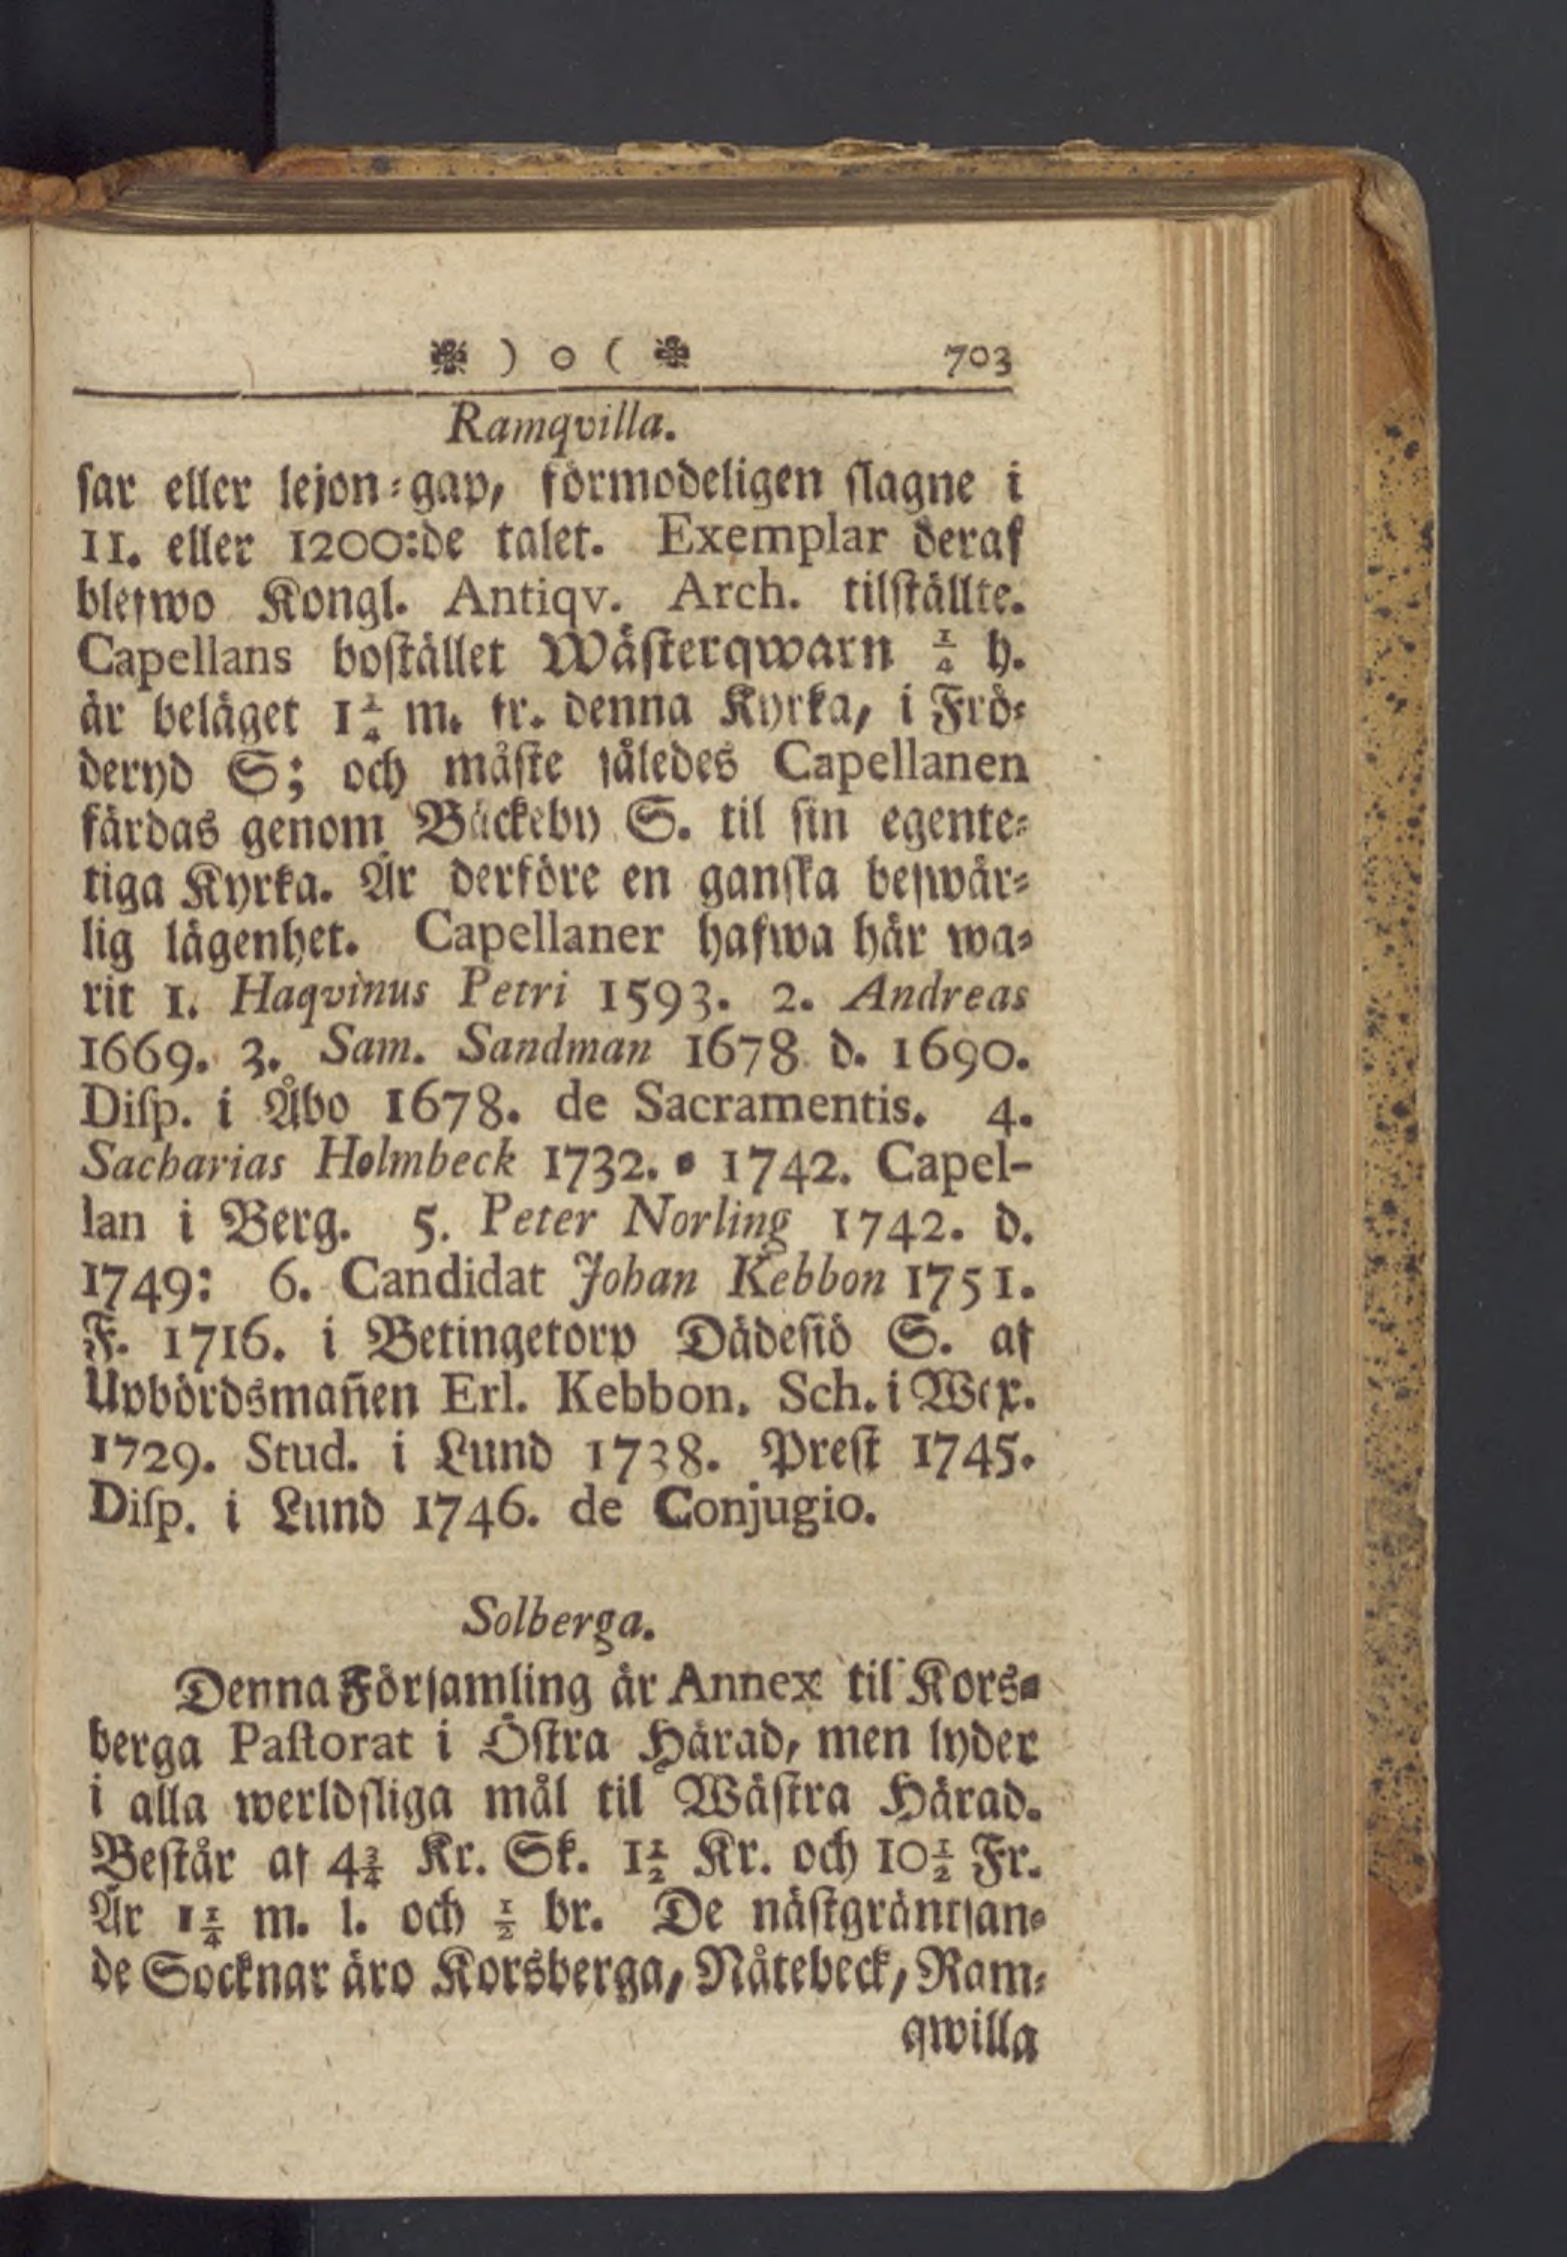 ❉ ) o ( ❉ 703
Ramqvilla.
sar eller lejon-gap, förmodeligen slagne i
11. eller 1200:de talet. Exemplar deraf
blefwo Kongl. Antiqv. Arch. tilställte.
Capellans bostället Wästerqwarn ¼ h.
är beläget 1¼ m. fr. denna Kyrka, i Frö-
deryd S; och måste således Capellanen
färdas genom Bäckeby S. til sin egente-
tiga Kyrka. Är derföre en ganska beswär-
lig lägenhet. Capellaner hafwa här wa-
rit 1. Haqvinus Petri 1593. 2. Andreas
1669. 3. Sam. Sandman 1678 d. 1690.
Disp. i Åbo 1678. de Sacramentis. 4.
Sacharias Holmbeck 1732. - 1742. Capel-
lan i Berg. 5. Peter Norling 1742. d.
1749: 6. Candidat Johan Kebbon 1751.
F. 1716. i Betingetorp Dädesiö S. af
Upbördsmañen Erl. Kebbon. Sch. i Wex.
1729. Stud. i Lund 1738. Prest 1745.
Disp. i Lund 1746. de Conjugio.
Solberga.
Denna Församling är Annex til Kors-
berga Pastorat i Östra Härad, men lyder
i alla werldsliga mål til Wästra Härad.
Består af 4¾ Kr. Sk. 1½ Kr. och 10½ Fr.
Är 1¼ m. l. och ½ br. De nästgräntsan-
de Socknar äro Korsberga, Nåtebeck, Ram-
qwilla